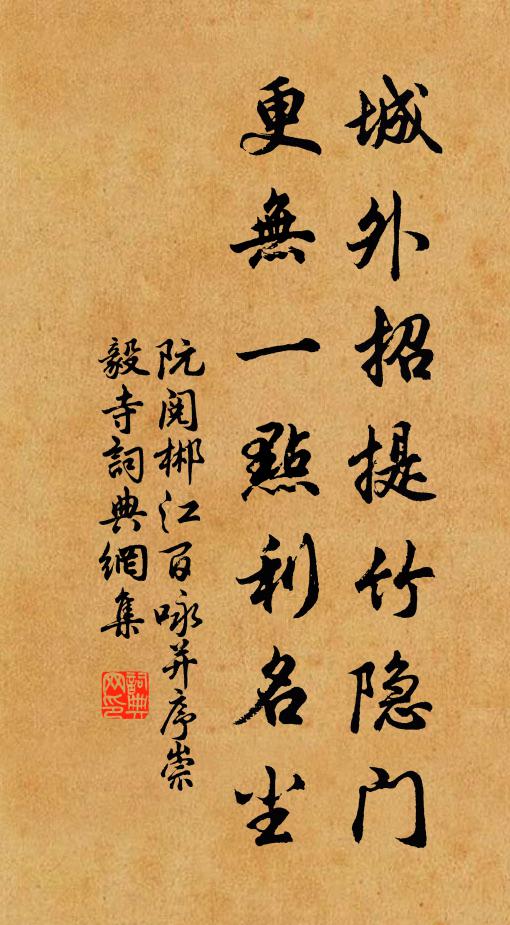 城外招提竹隐门
更無一點利名尘
阮阅郴江百咏并序崇
毅寺詞典網集
詞典网印